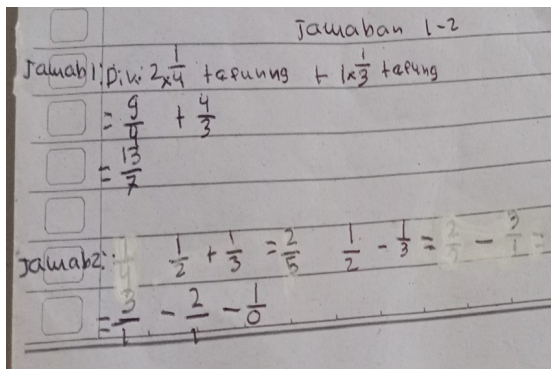 Jawaban 1-2
Jawab1: Divi 2x 1/4 tepunng + 1x 1/3 tepung
= 9/4 + 4/3
= 13/7
Jawab2: 1/2 + 1/3 = 2/5 1/2 - 1/3 =
= 3/1 - 2/1 - 1/0